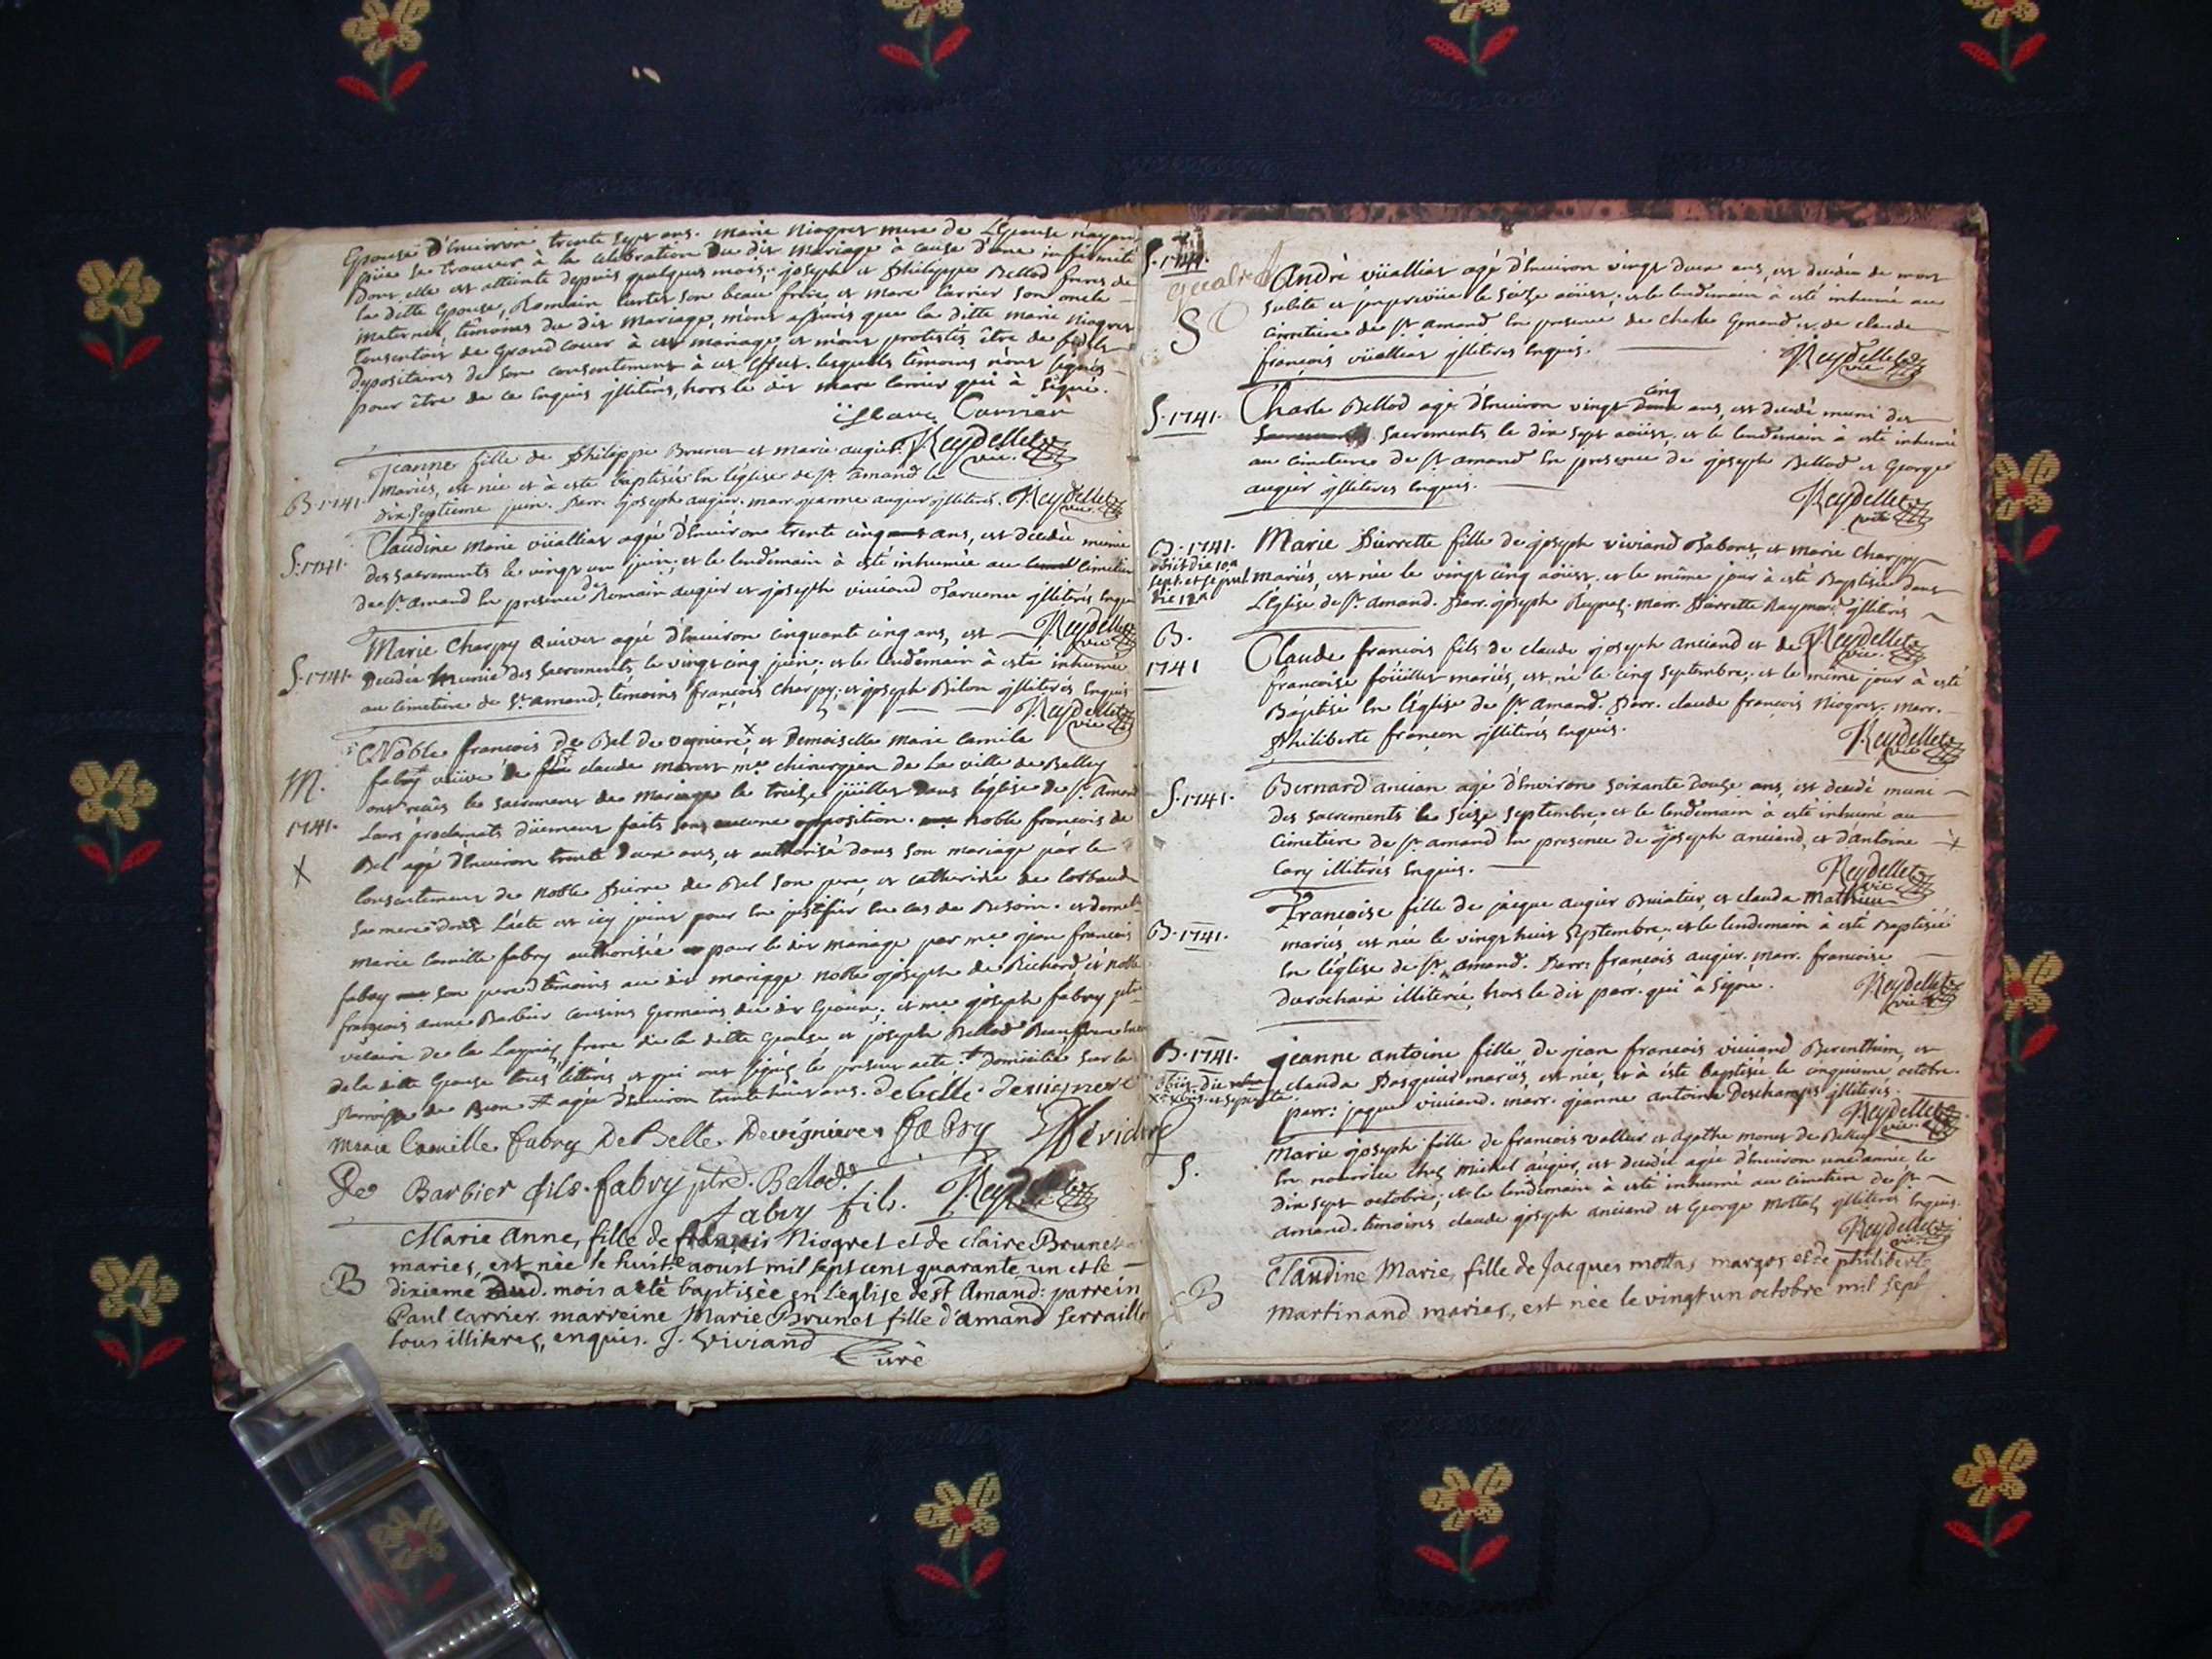 Epouse d'Environ trente sept ans. marie Niogret mere de L'Epouse n'ayant
püe se trouver à la celebration du dit Mariage à cause d'une infirmité
dont elle est atteinte depuis quelques mois. joseph et philippe Bellod freres de
la ditte Epouse, Romain son beau frere et marc Carrier son oncle
maternel, têmoins du dit Mariage, m'ont assurés que la ditte marie Niogret
Consentoit de Grand Coeur à cet mariage, et m'ont protestés être de fidels
depositaires de son consentement à cet effet. lesquels têmoins n'ont signés
pour être de ce Enquis illiterés, hors le dit marc Carrier qui à signé.
Marc Carrier
Reydellet vic.
B. 1741. jeanne fille de philippe Brunet et marie augier
Mariés, est née et à esté baptisée En l'église de St. amand le
dix septieme juin. Parr. joseph augier. marr. jeanne augier illiterés. Reydellet vic.
S. 1741. Claudine Marie vüalliat agée d'Environ trente cinq ans, est decedée munie
des sacrements le vingt un juin; et le lendemain à esté inhumée au Cimetiere
de St. amand En presence de Romain augier et joseph viviand illiterés
Reydellet vic.
S. 1741. Marie Charpy agée d'Environ cinquante cinq ans, est
Decedée Munie des sacrements, le vingt cinq juin; et le lendemain à esté inhumée
au Cimetiere de St. amand, têmoins françois Charpy; et joseph Bilon illiterés Enquis
Reydellet vic.
M. 1741. X Noble francois De Bel de vignieres et Demoiselle marie Camile
fabry veüve de claude me. chirurgien de La ville de Belley
ont recüs le sacrement de Mariage le treize jüillet dans l'église de St. Amand
Leurs proclamats düement faits sans aucune opposition. noble francois de
Bel agé d'Environ trente deux ans, et authorisé dans son mariage par le
Consentement de noble pierre de Bel son pere et catherine de
sa mere dont l'acte est icy joint pour En justifier En cas de Besoin. et demelle
marie Camille fabry authorisée pour le dit mariage par me. jean francois
fabry son pere têmoins au dit mariage noble joseph de Richard et noble
françois anne Barbier cousins Germains du dit Epoux; et me. joseph fabry ptre.
vicaire de frere de la ditte Epouse et joseph Bellod Beaufrere
de la ditte Epouse tous littérés, et qui ont signés le present acte: domicilié sur la
Parroisse de agée d'Environ trente huit ans. De Belle. Devignere
Marie Camille fabry De Belle. Devignieres fabry
De Barbier fils. fabry ptre. Bellod.
fabry fils. Reydellet vic.
B Marie Anne, fille de françois Niogret et de Claire Brunet
mariés, est née le huite aoust mil sept cent quarante un et le
dixieme dud. mois a eté baptisèe en l'eglise de St. Amand: parrein
Paul Carrier. marreine Marie Brunet fille d'amand
tous illiterés, enquis. J. Viviand
Curé
S. 1741.
S André vüalliat agé d'Environ vingt deux ans, est decedée de mort
subite et imprevüe le seize aöust; et le lendemain à esté inhumé au
Cimetiere de St. amand En presence de Charle et de claude
françois vüalliat illiterés Enquis.
Reydellet vic
S. 1741. Charle Bellod agé d'Environ vingt cinq ans, est decedé muni des
sacrements le dix sept aöust. et le lendemain à esté inhumé
au cimetiere de St. amand En presence de joseph Bellod et George
augier illiterés Enquis.
Reydellet vic
B. 1741. Marie Pierrette fille de joseph viviand et marie Charpy
obiit die 10a sept. et sepul die 12a mariés, est née le vingt cinq aöust. et le même jour à esté Baptisée dans
L'église de St. Amand. Parr. joseph marr. Pierrette illiterés
B. 1741 Claude francois fils de claude joseph anciand et de Reydellet vic.
francoise mariés, est né le cinq septembre, et le même jour à esté
Baptisé En l'église de St. Amand. Parr. claude françois Niogret. marr.
Philiberte françon illiterés Enquis. Reydellet vic
S. 1741. Bernard ancian agé d'Environ soixante douze ans, est decedé muni
des sacrements le seize septembre. et le lendemain à esté inhumé au
Cimetiere de St. amand En presence de joseph anciand, et d'antoine
illiterés Enquis. Reydellet vic
B. 1741. Francoise fille de jacque augier et clauda Mathieu
mariés est née le vingt huit septembre. et le lendemain à esté Baptisée
En l'église de St. Amand. Parr. francois augier. marr. francoise
Durochair illiterée hors le dit parr. qui à signé. Reydellet vic
B. 1741. jeanne antoine fille de jean francois viviand et
clauda Pasquier mariés, est née, et à esté baptisée le cinquieme octobre.
parr: jaque viviand. marr. jeanne antoine Deschamps illiterés.
Reydellet vic.
S. Marie joseph fille de francois vallet et agathe monet de
En nourrice chez michel augier, est decedée agée d'Environ une année le
dix sept octobre; et le lendemain à esté inhumé au cimetiere de St.
amand. têmoins claude joseph anciand et George Mottaz illiterés Enquis.
Reydellet vic.
B Claudine Marie, fille de Jacques mottaz margot et de philiberte
martinand maries, est née le vingt un octobre mil sept